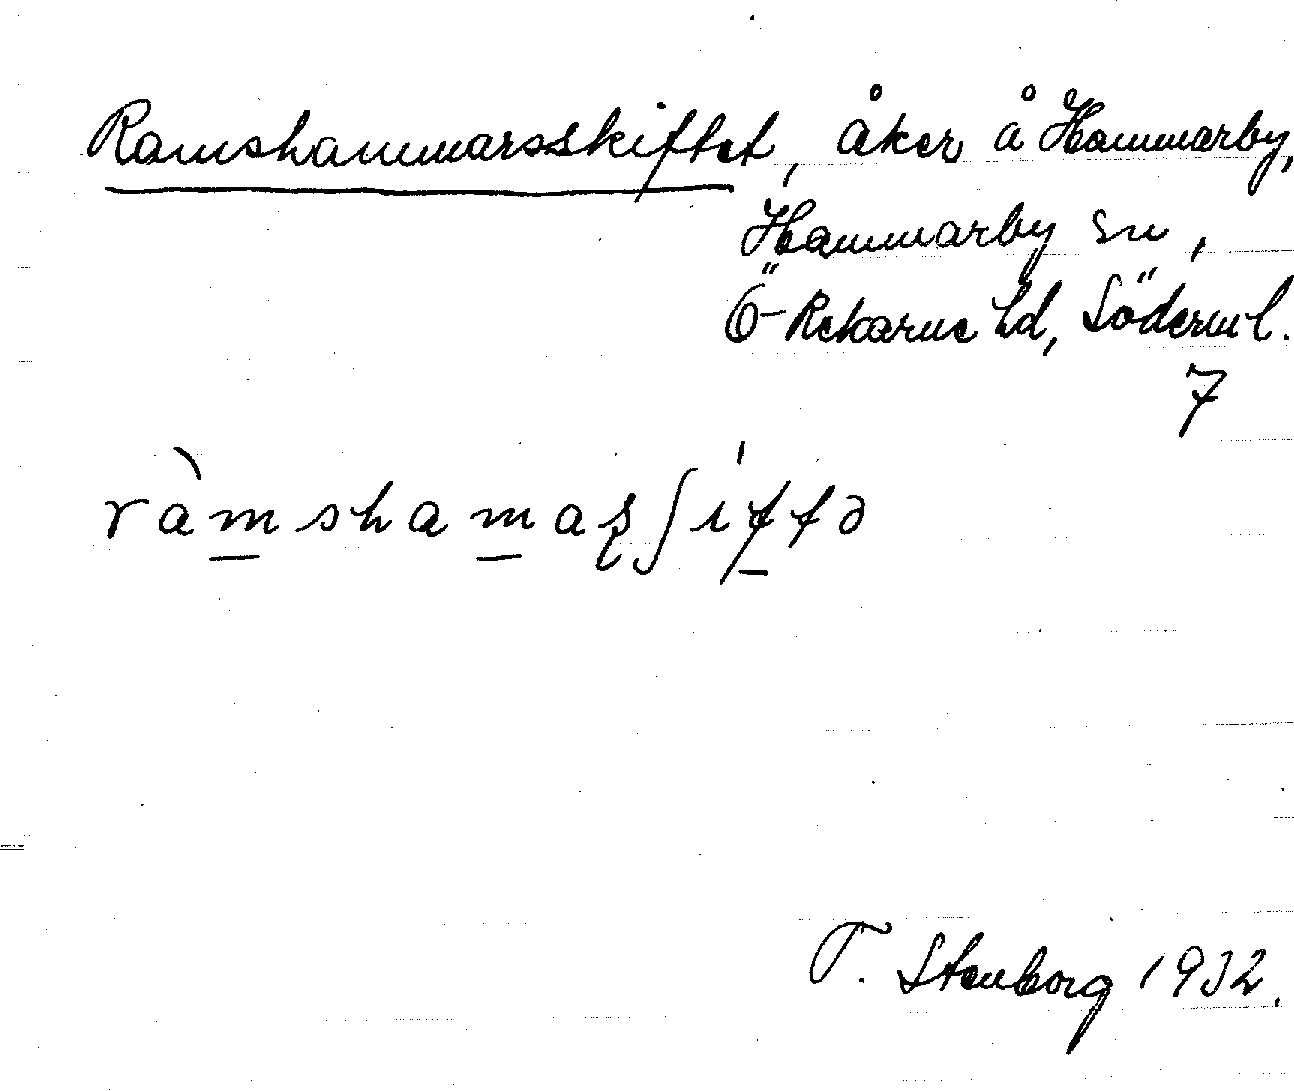 Ramshammarsskiftet, åker å Hammarby,
Hammarby sn,
Ö-Rekarne hd, Söderml.
7
ràmshamaʂʃíftə
T. Stenborg 1932.